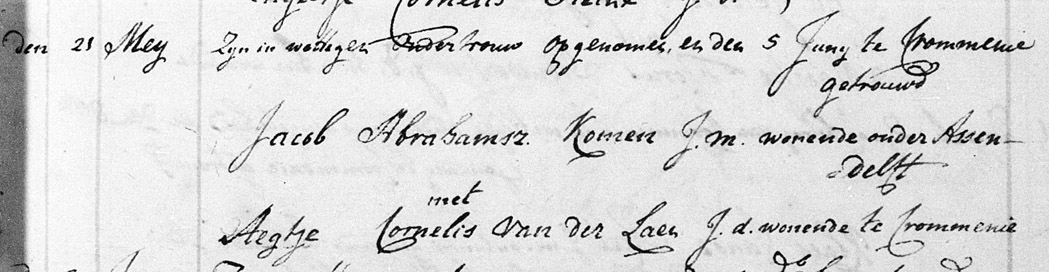 den 21 Mey Zijn in wettegen ondertrouw opgenomen, en den 5 Juny te Crommenie
getrouwd
Jacob Abrahamsz. Komen J.m. wonende onder Assen-
delfft
met
Aegtje Cornelis van der Laen J.d. wonende te Crommenie